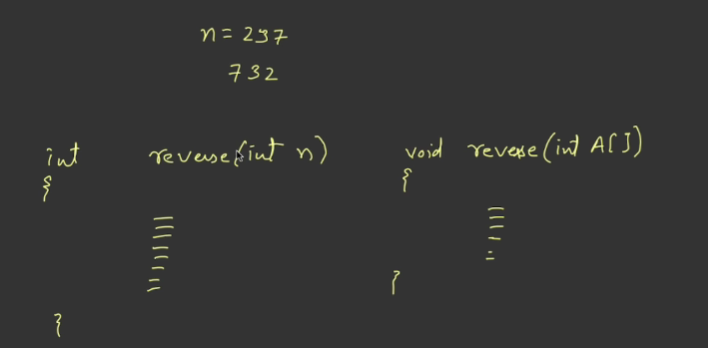 n = 237
732
int reverse(int n) void reverse(int A[])
{ {
}
}